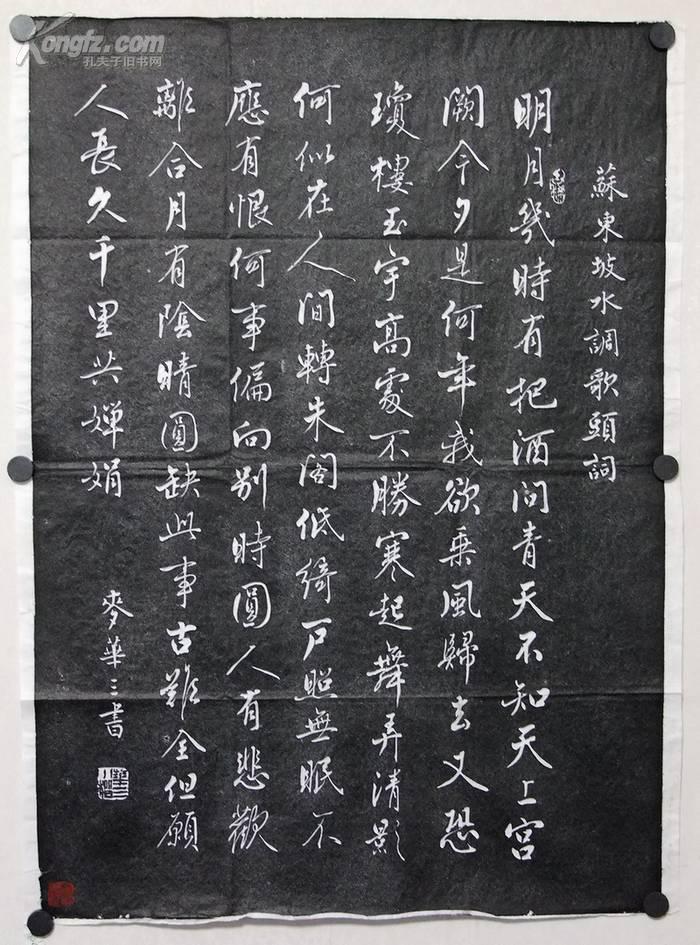 Kongfz.com
孔夫子旧书网
蘇東坡水調歌頭詞
明月幾時有把酒問青天不知天上宮
闕今夕是何年我欲乘風歸去又恐
瓊樓玉宇高處不勝寒起舞弄清影
何似在人間轉朱閣低綺戶照無眠不
應有恨何事偏向別時圓人有悲歡
離合月有陰晴圓缺此事古難全但願
人長久千里共嬋娟
麥華三書